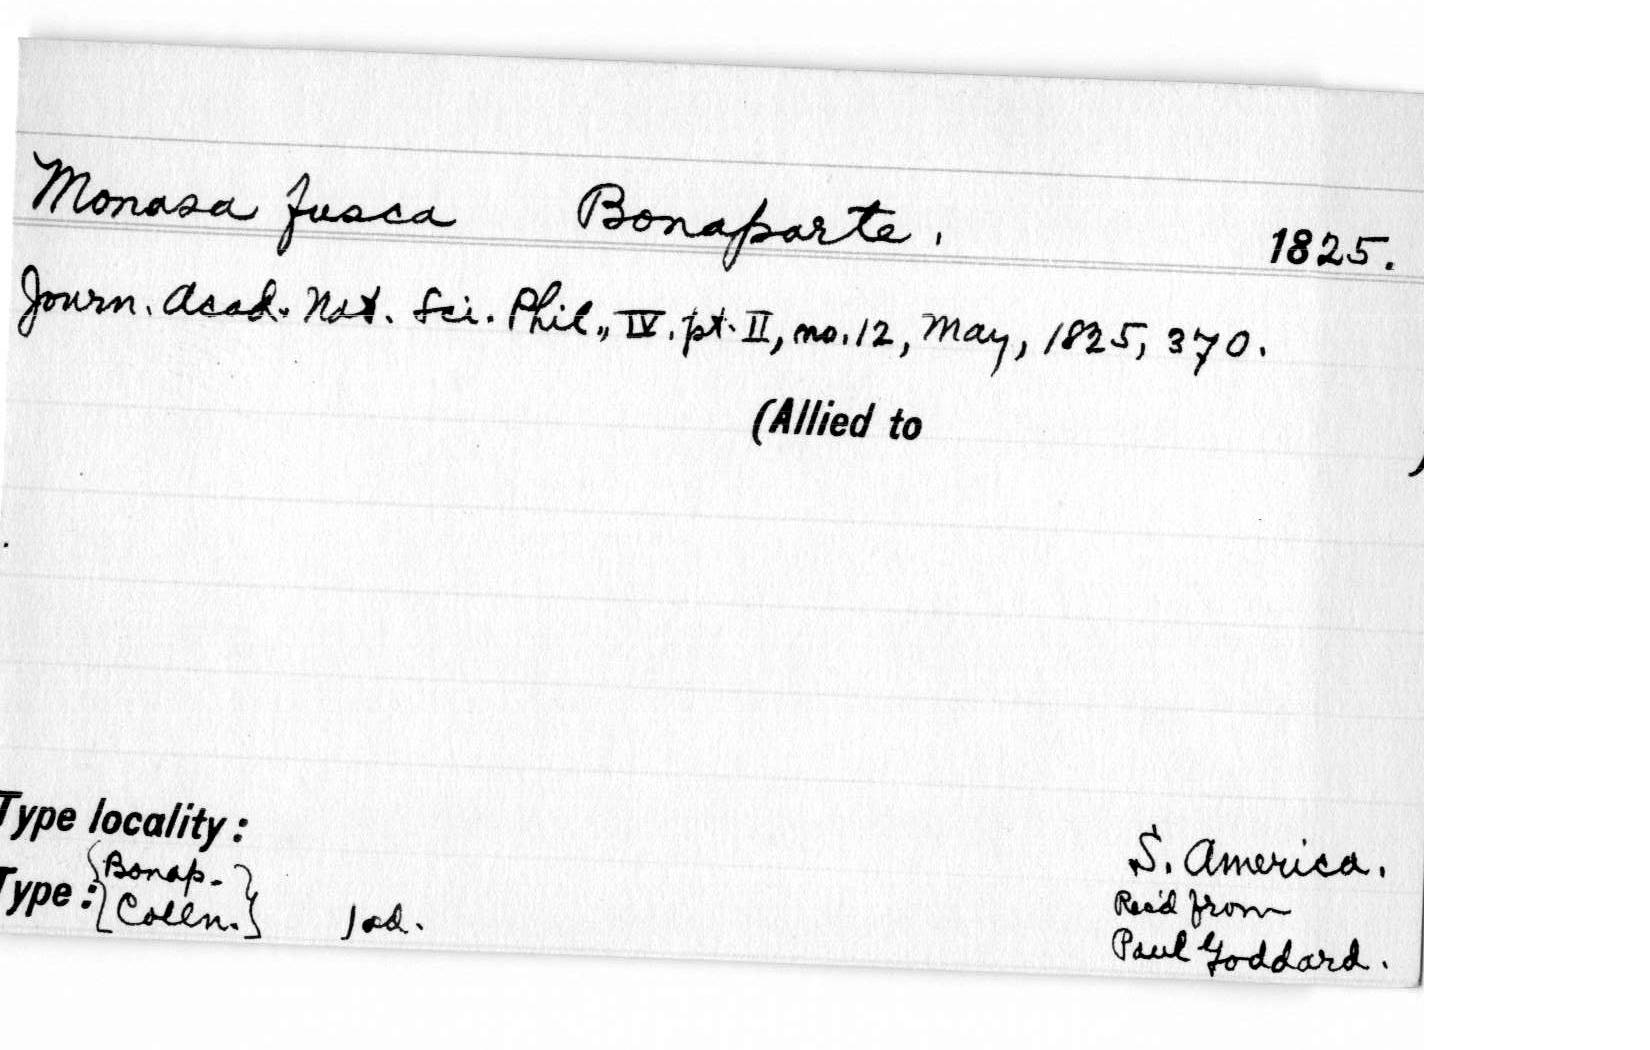 Monasa fusca Bonaparte. 1825.
Journ. Acad. Nat. Sci. Phil., IV. pt. II, no. 12, May, 1825, 370.
(Allied to )
Type locality: S. America.
Type: {Bonap. Colln.} 1 ad. Rec'd from
Paul Goddard.